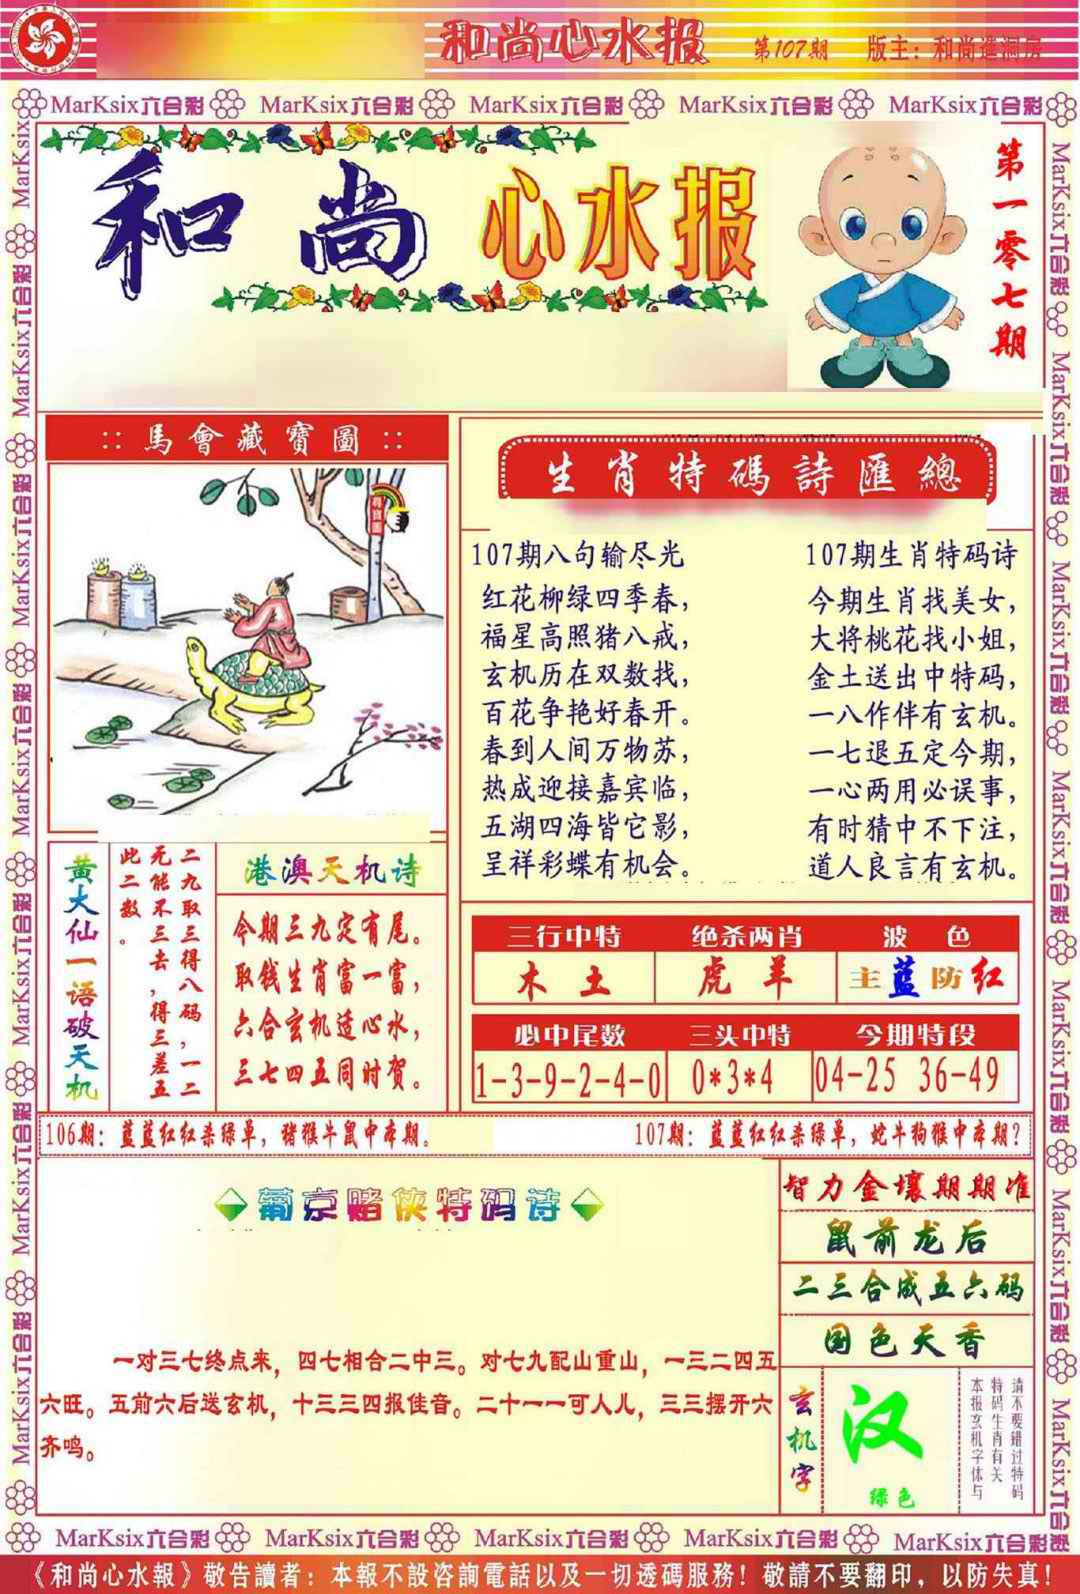 和尚心水报 第107期 版主：和尚進洞房
MarKsix六合彩 MarKsix六合彩 MarKsix六合彩 MarKsix六合彩 MarKsix六合彩
和尚心水报
第一零七期
::馬會藏寶圖::
生肖特碼詩匯總
107期八句输尽光
红花柳绿四季春，
福星高照猪八戒，
玄机历在双数找，
百花争艳好春开。
春到人间万物苏，
热成迎接嘉宾临，
五湖四海皆它影，
呈祥彩蝶有机会。
107期生肖特码诗
今期生肖找美女，
大将桃花找小姐，
金土送出中特码，
一八作伴有玄机。
一七退五定今期，
一心两用必误事，
有时猜中不下注，
道人良言有玄机。
黄大仙一语破天机
二九取三得八码，一二
无能不三去，得三差五
此二数。
港澳天机诗
今期三九定有尾。
取钱生肖富一富，
六合玄机适心水，
三七四五同时贺。
三行中特 绝杀两肖 波色
木土 虎羊 主蓝防红
必中尾数 三头中特 今期特段
1-3-9-2-4-0 0*3*4 04-25 36-49
106期：蓝蓝红红杀绿单，猪猴牛鼠中本期。
107期：蓝蓝红红杀绿单，蛇牛狗猴中本期？
葡京赌侠特码诗
一对三七终点来，四七相合二中三。对七九配山重山，一三二四五
六旺。五前六后送玄机，十三三四报佳音。二十一一可人儿，三三摆开六
齐鸣。
智力金壤期期准
鼠前龙后
二三合成五六码
国色天香
玄机字
汉
绿色
请不要错过特码
特码生肖有关
本报玄机字体与
MarKsix六合彩 MarKsix六合彩 MarKsix六合彩 MarKsix六合彩 MarKsix六合彩
《和尚心水報》敬告讀者：本報不設咨詢電話以及一切透碼服務！敬請不要翻印，以防失真！